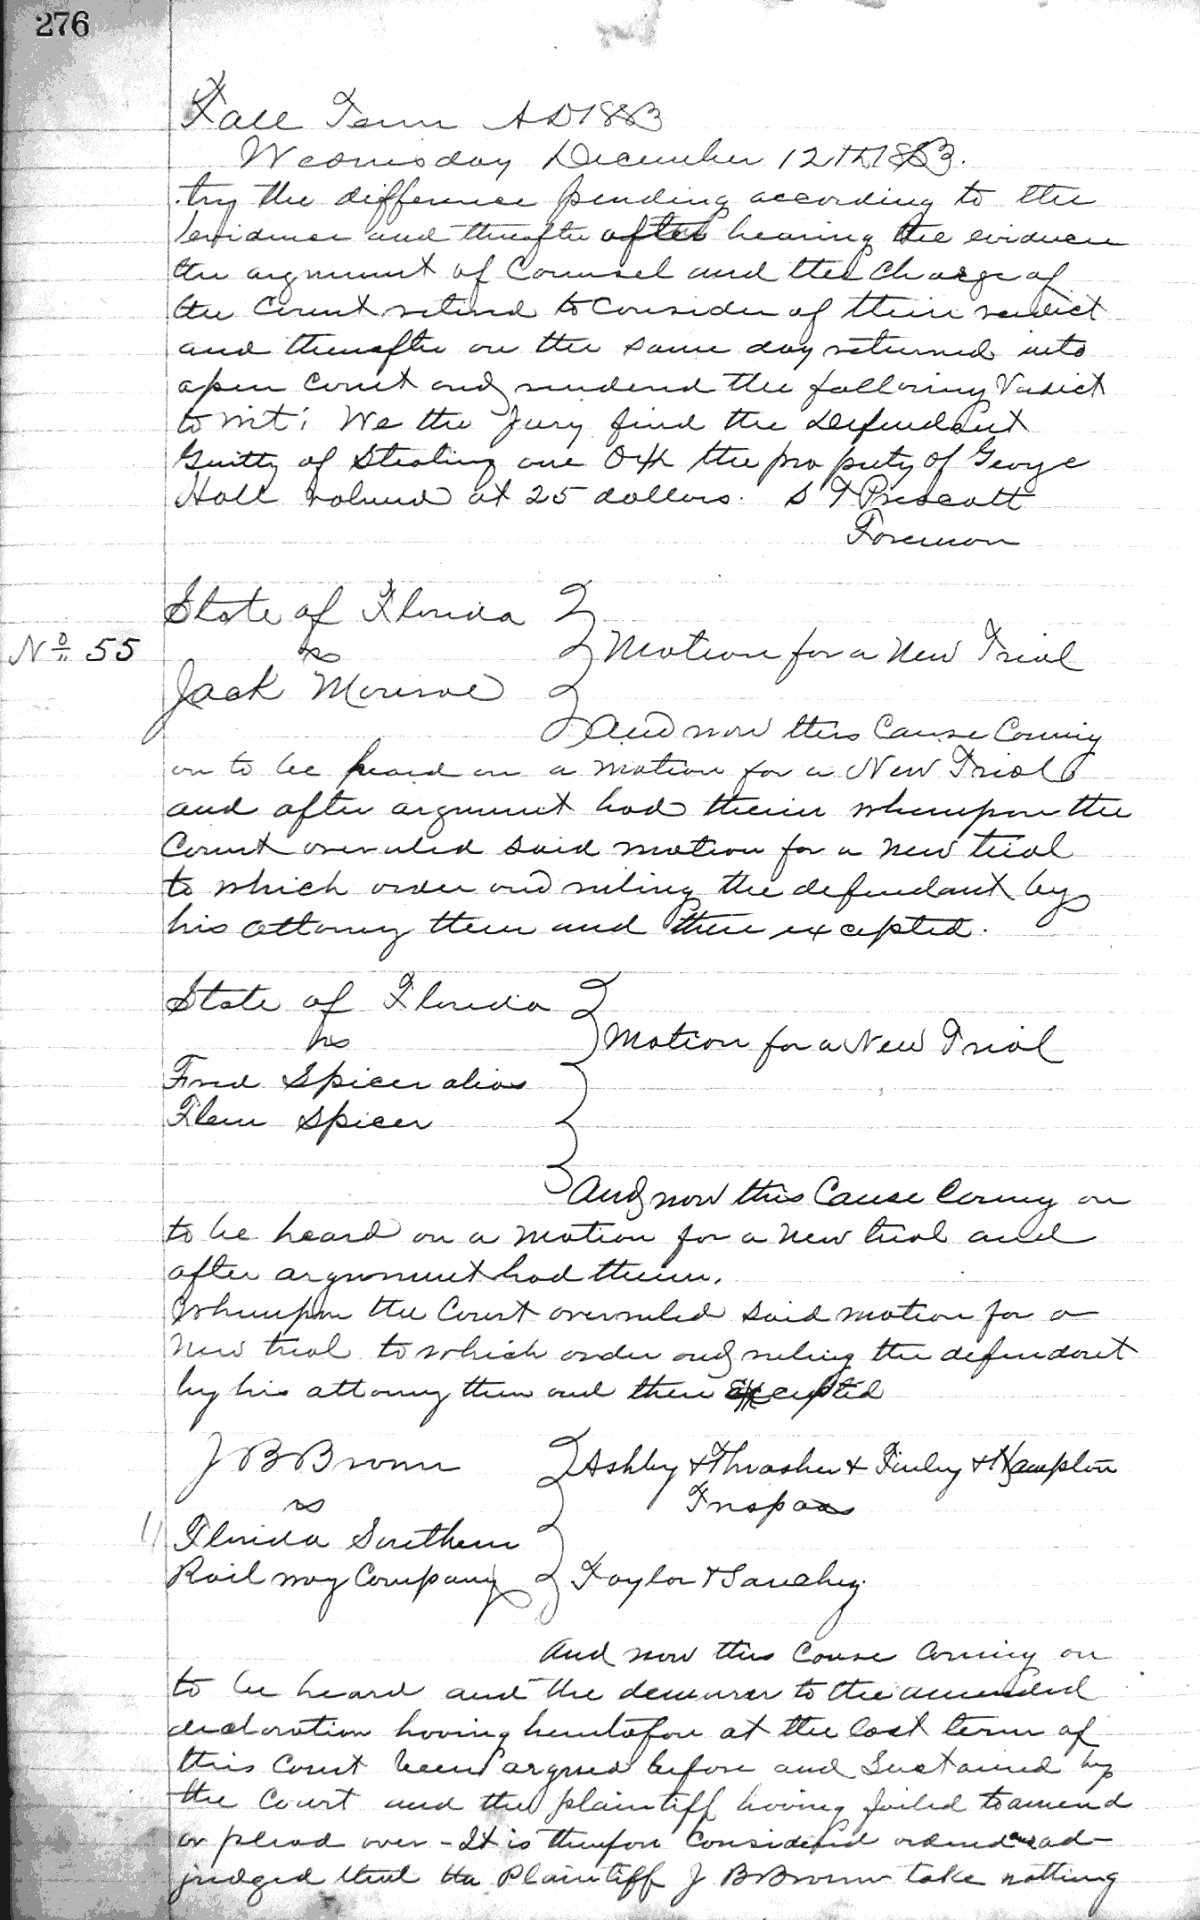 276
Fall Term A D 1883
Wednesday December 12TH 1883.
try the difference pending according to the
evidence and thereafter after hearing the evidence
the argument of Counsel and the Charge of
the Court retired to Consider of their verdict
and thereafter on the same day returned into
open Court and rendered the following Verdict
to wit: We the Jury find the Defendant
Guilty of Stealing one Ox the property of George
Hall valued at 25 dollars. S T Prescott
Foreman
State of Florida
vs
No 55
Motion for a New Trial
Jack Monroe
And now this Cause Coming
on to be heard on a motion for a New Trial
and after argument had therein whereupon the
Court overruled said motion for a new trial
to which order and ruling the defendant by
his attorney then and there excepted.
State of Florida
vs
Motion for a New Trial
Fred Spicer alias
Flem Spicer
And now this Cause Coming on
to be heard on a motion for a new trial and
after argument had therein.
Whereupon the Court overruled said motion for a
New trial to which order and ruling the defendant
by his attorney then and there excepted
J B Brown
Ashby & Thrasher & Finley & Hampton
vs
Trespass
11
Florida Southern
Railway Company
Taylor & Sanchez.
And now this Cause Coming on
to be heard and the demurer to the amended
declaration having heretofore at the last term of
this Court been argued before and Sustained by
the Court and the plaintiff having failed to amend
or plead over - It is therefore Considered ordered and ad-
judged that the Plaintiff J B Brown take nothing